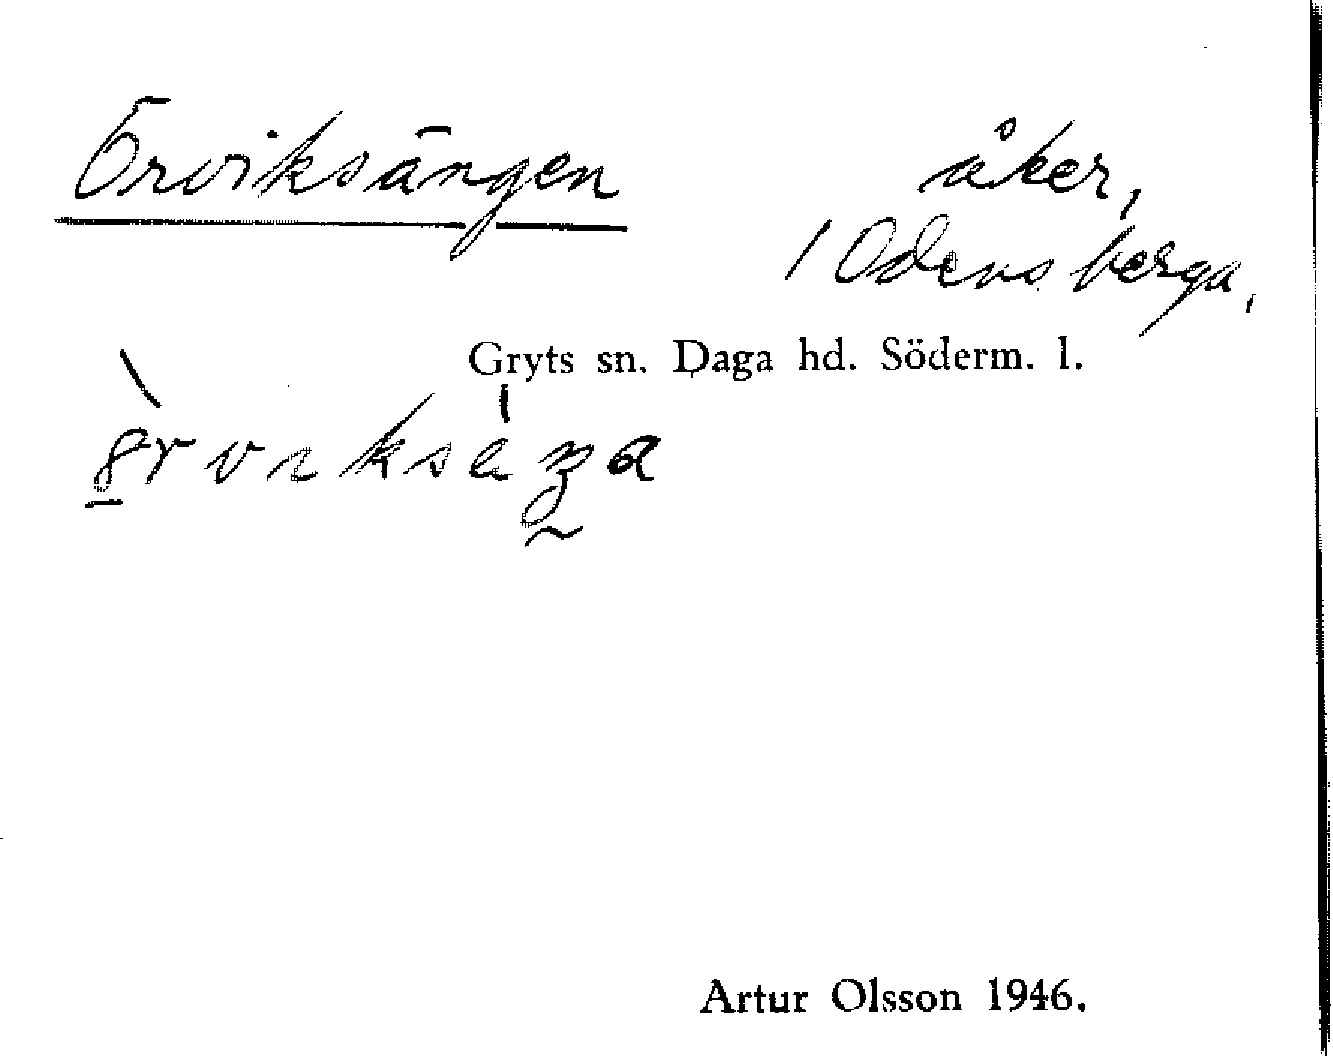 Örviksängen åker,
1 Odensberga,
Gryts sn. Daga hd. Söderm. l.
Artur Olsson 1946.